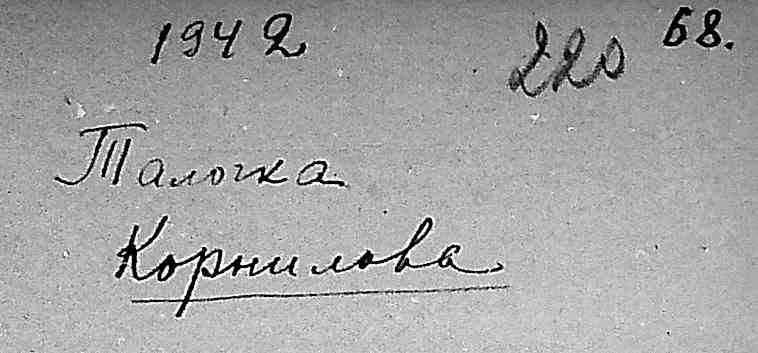 1942 220 68.
Талочка
Корнилова